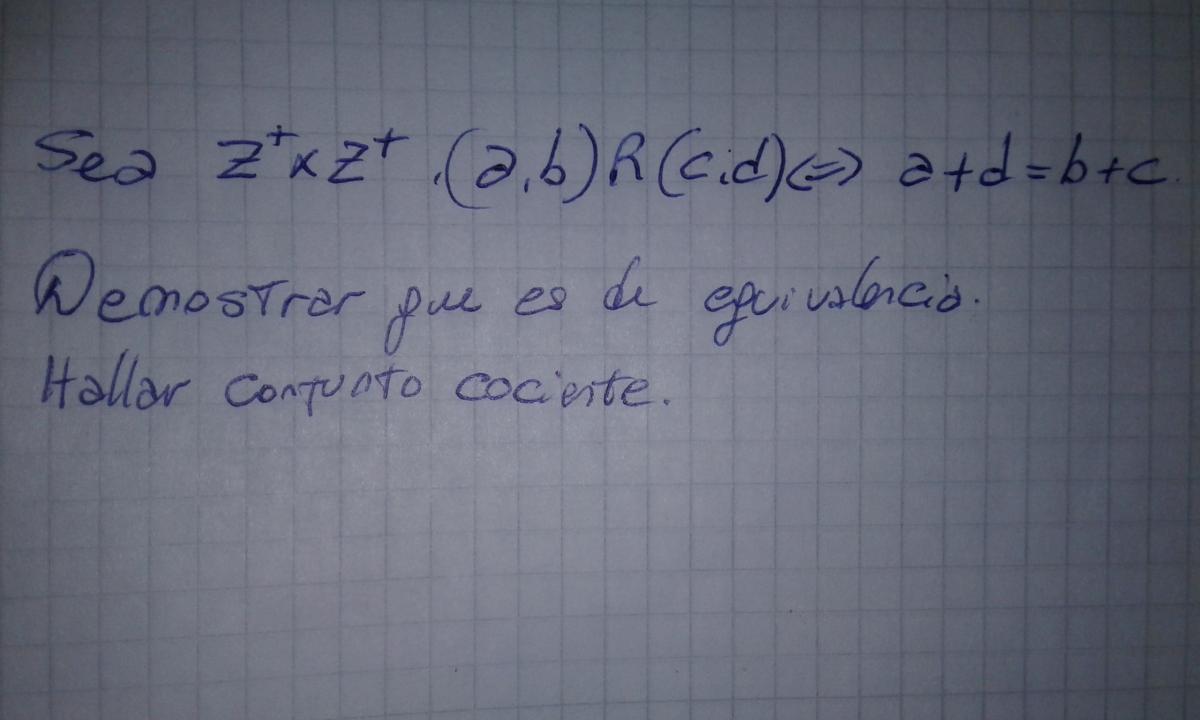 Sea Z⁺xZ⁺ .(a,b)R(c,d)<=> a+d=b+c.
Demostrar que es de equivalencia.
Hallar conjunto cociente.